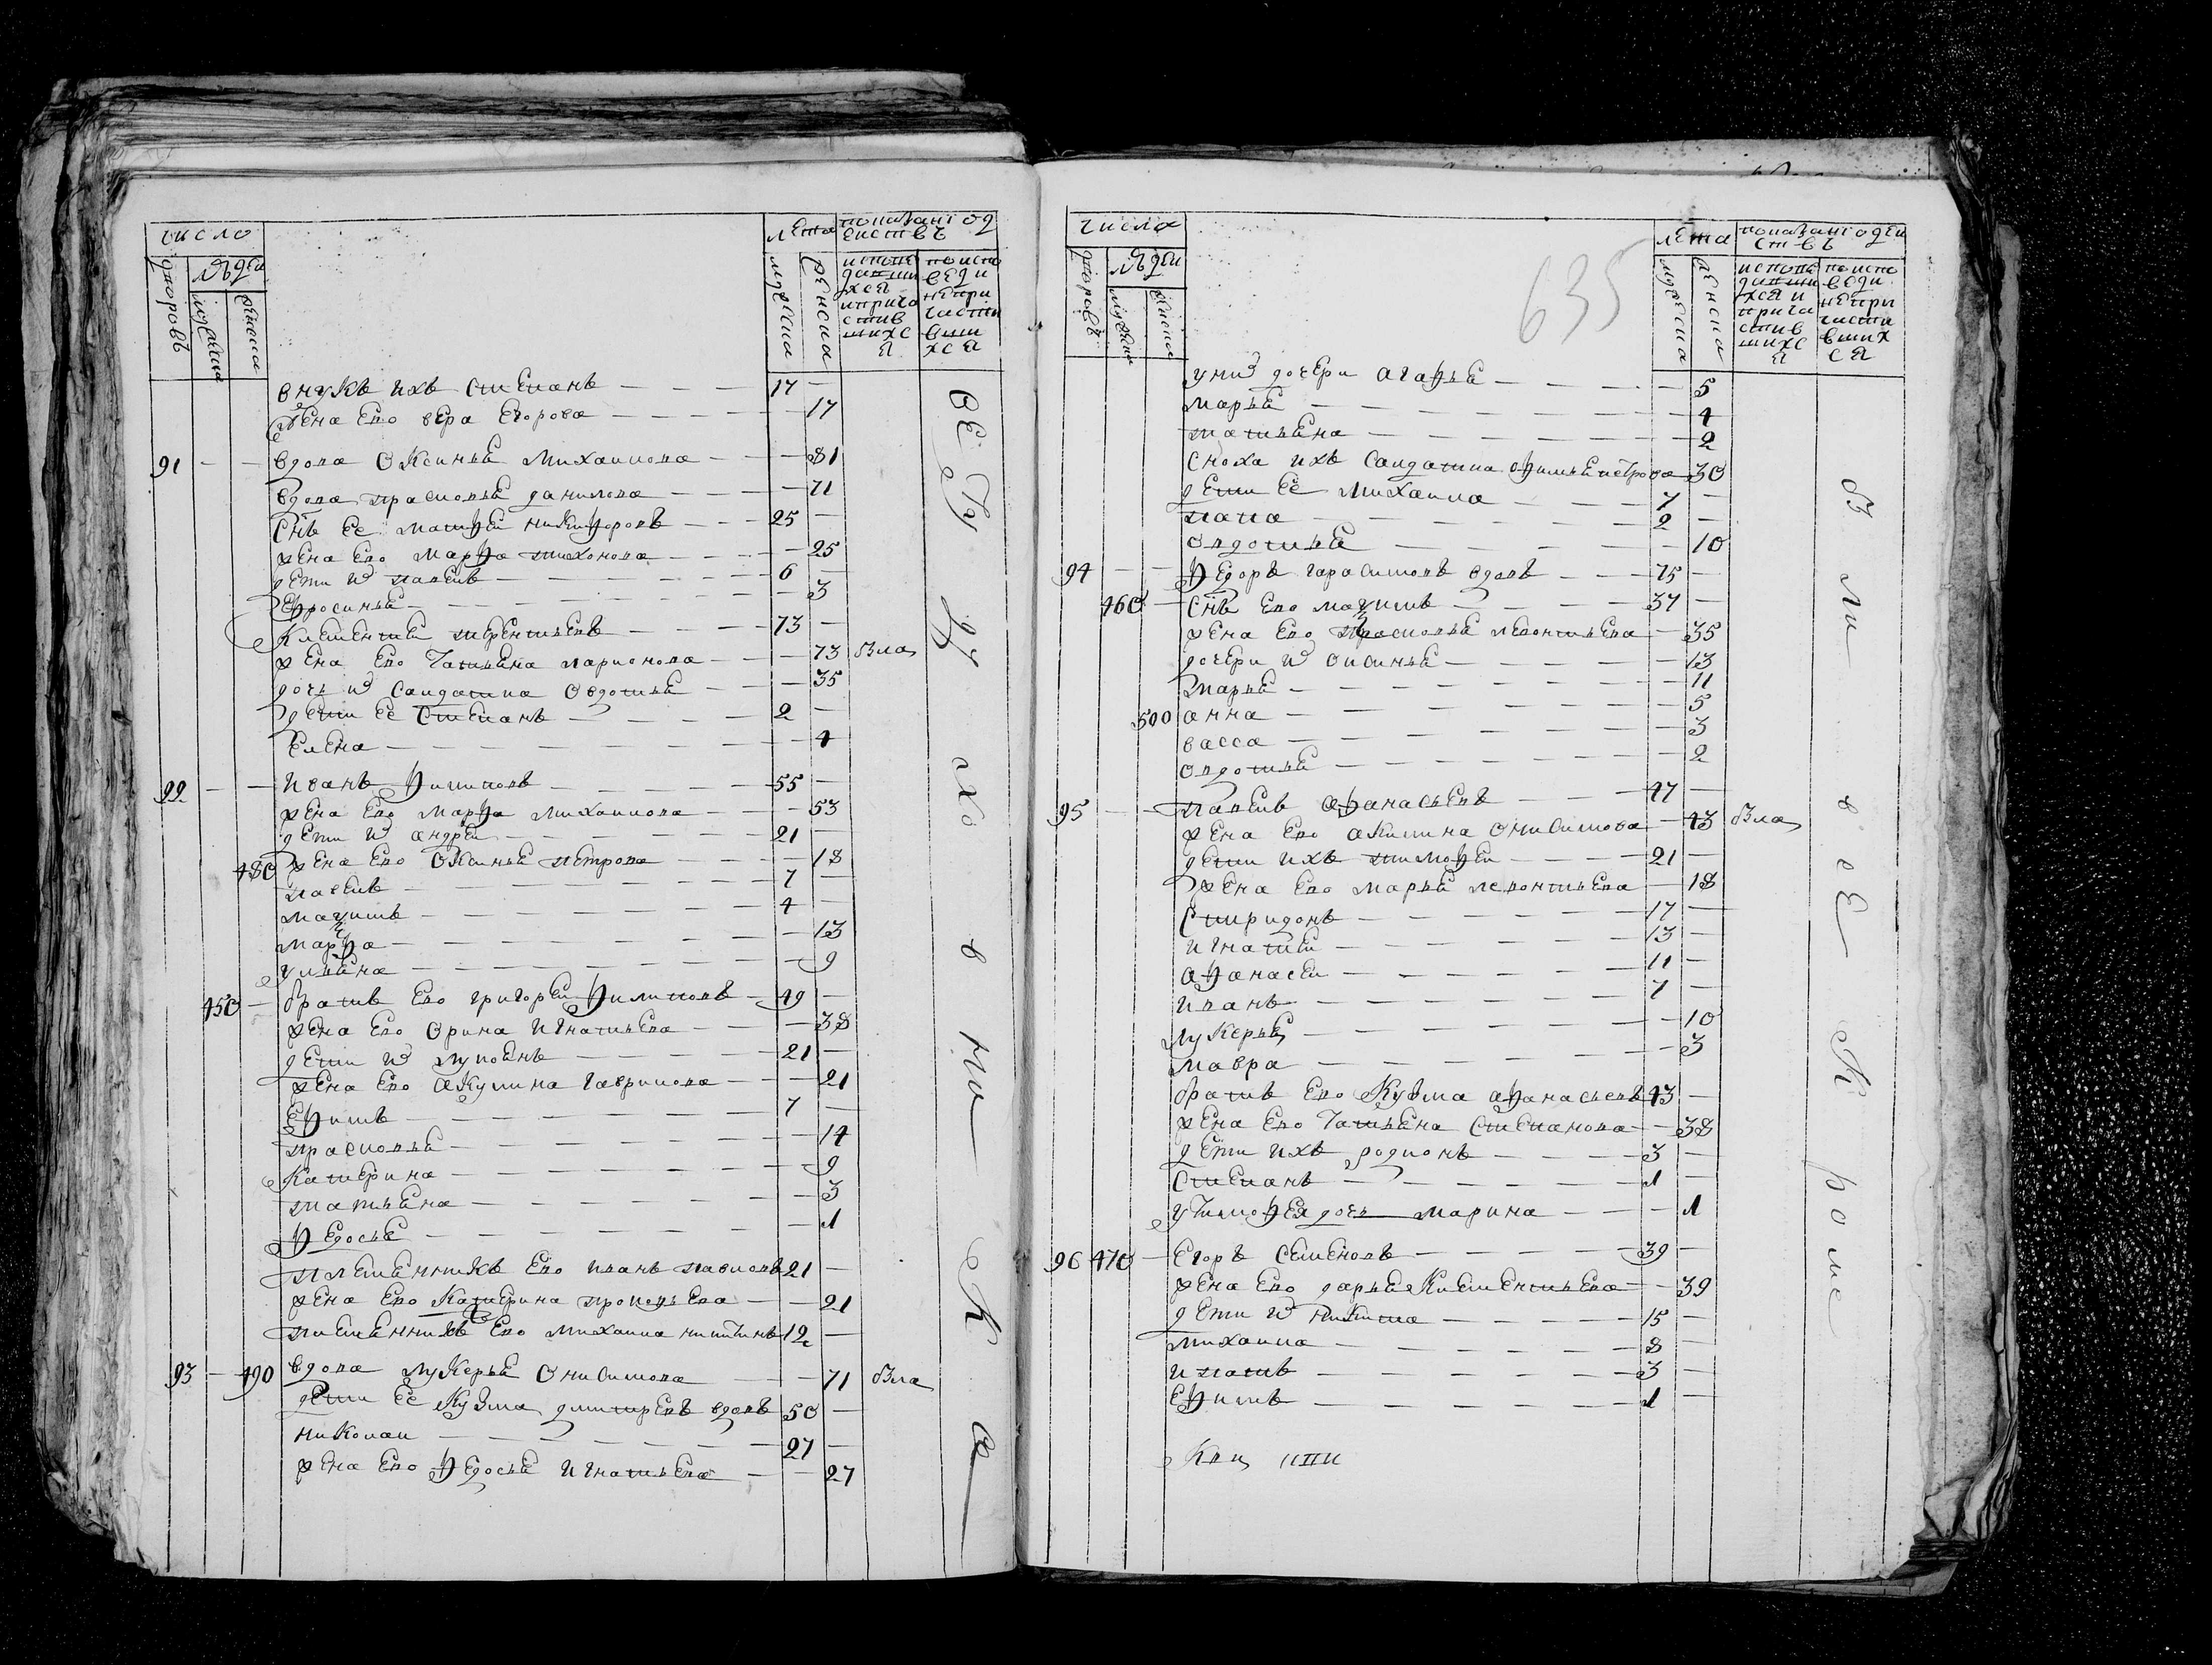 число
дворовъ
людей
мужеска
женска
лета
мужеска
женска
показание од
ействъ
исповеда
вшихся
и прича
стив
шихс
я
по испо
веди
непри
частив
вши
хся
внукъ ихъ степанъ — — — 17 —
жена ево вера егорова — — — — 17
91 — — вдова оксинья михаилова — — 81
вдова прасковья данилова — — — 71
снъ ее матфеи никифоровъ — — 25 —
жена ево марфа тихонова — — — 25
дети иѡ павелъ — — — 6 —
ефросинья — — — 3
клементеи терентьевъ — — — 73 —
жена ево татьяна ларионова — — 73 взла
дочь иѡ салдатка овдотья — — 35
дети ее степанъ — — — 2 —
елена — — — 4
92 — — иванъ филиповъ — — — 55 —
жена ево марфа михаилова — — 53
дети иѡ андреи — — — 21 —
480 жена ево оксинья петрова — — — 18
павелъ — — — 7 —
матфеи — — — 4 —
марфа — — — 13
ульяна — — — 9
450 — братъ ево григореи филиповъ — 49 —
жена ево орина игнатьева — — — 38
дети иѡ лукьянъ — — — 21 —
жена ево акулина гаврилова — — 21
ефимъ — — — 7 —
прасковья — — — 14
катерина — — — 9
татьяна — — — 3
федосья — — — 1
племенникъ ево иванъ павловъ 21 —
жена ево катерина прокофьева — — 21
племенникъ ево михаила никитинъ 12 —
93 — 490 вдова лукерья онисимова — — 71 взла
дети ее кузма дмитревъ вдовъ 50 —
николаи — — — 27 —
жена ево федосья игнатьева — — 27
числа
дворовъ
людеи
мужеска
женска
лета
мужеска
женска
показание одеи
ствъ
исповеда
вшихся и
прича
стив
шихс
я
по испо
веди
непри
части
вших
ся
635
у ниѡ дочери агафья — — — 5
марья — — — 4
татьяна — — — 2
сноха ихъ салдатка афимья петрова — 30
дети ее михаила — — — 7 —
папа — — — 2 —
овдотья — — — 10
94 — — федоръ гарасимовъ вдовъ — — 75 —
460 — снъ ево матфеи — — — 37 —
жена ево прасковья леонтьева — 35
дочери иѡ оксинья — — — 13
марья — — — 11
500 анна — — — 5
васса — — — 3
овдотья — — — 2
95 — — павелъ афанасьевъ — — — 47 —
жена ево акилина онисимова — 43 взла
дети ихъ тимофеи — — — 21 —
жена ево марья леонтьева — 18
спиридонъ — — — 17 —
игнатеи — — — 13 —
афанасеи — — — 11 —
иванъ — — — 7 —
лукерья — — — 10
мавра — — — 3
братъ ево кузма афанасьевъ 43 —
жена ево татьяна степанова — — 38
дети ихъ родионъ — — — 3 —
степанъ — — — 1 —
у тимофея дочь марина — — — 1
96 470 — егоръ семеновъ — — — 39 —
жена ево дарья клементьева — — 39
дети иѡ никита — — — 15 —
михаила — — — 8 —
ипатъ — — — 3 —
ефимъ — — — 1 —